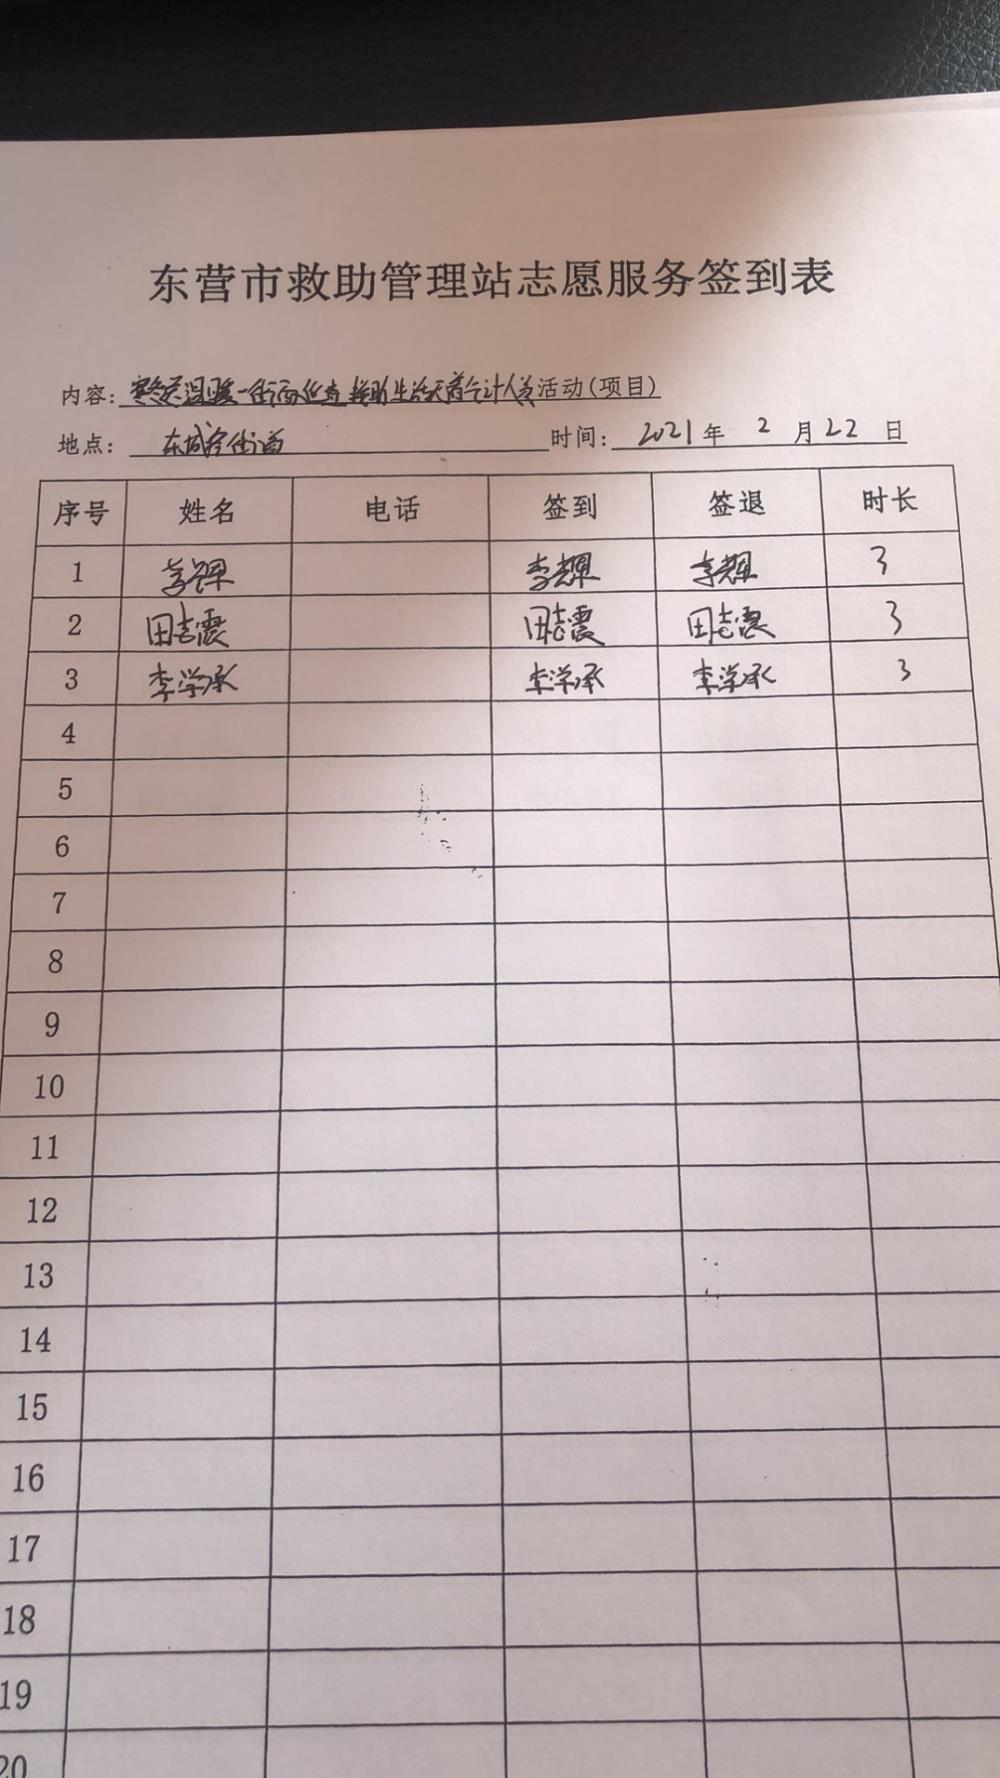 东营市救助管理站志愿服务签到表
内容：寒冬送温暖—街面巡查救助生活无着乞讨人员活动(项目)
地点：东城各街道 时间：2021年 2 月 22 日
序号 姓名 电话 签到 签退 时长
1 李辉 李辉 李辉 3
2 田志震 田志震 田志震 3
3 李学承 李学承 李学承 3
4
5
6
7
8
9
10
11
12
13
14
15
16
17
18
19
20